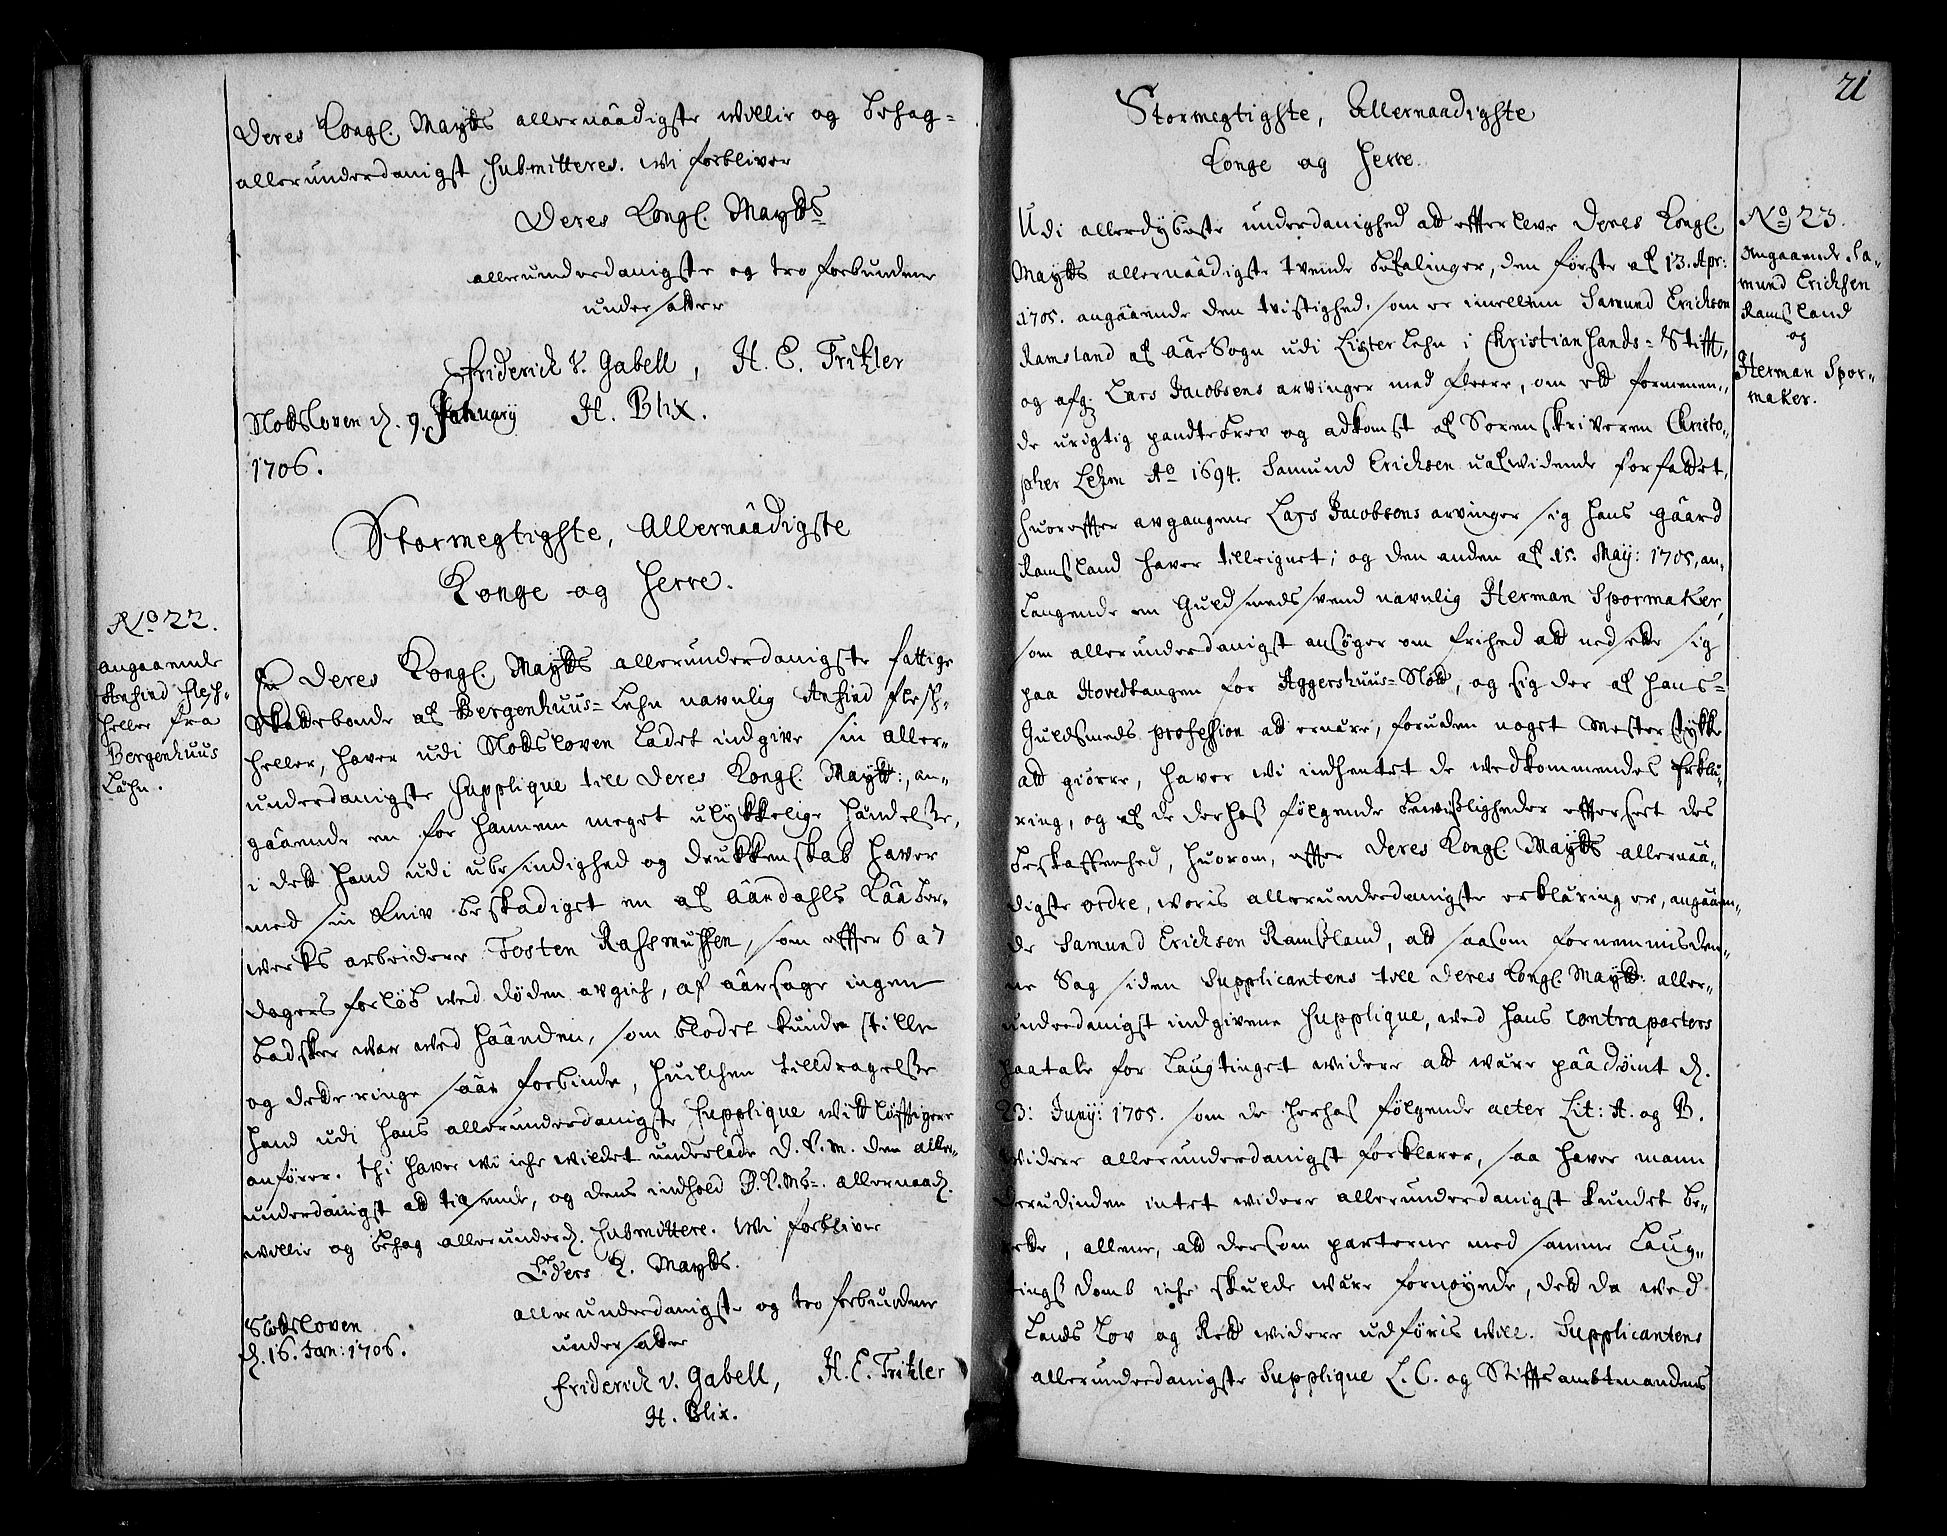 Deres Kongl. Maytts allernaadigste willie og behag-
allerunderdanigst submitteres. Wi forbliver
Deres Kongl. Maytts
allerunderdanigste og tro forbundene
undersatter
Friderich V. Gabell, H. C. Trikler
Slodsloven d. 9. January H. Blix.
1706.
Stormegtigste, Allernaadigste
Konge og Herre.
No 22.
angaaende
Anfind Flesh-
heller fra
Bergenhuus
Læhn.
En Deres Kongl. Maytts allerunderdanigste fattige
Skattebonde af Bergenhuus-Lehn navnlig Anfind Flesh-
heller, haver udi Slodsloven ladet indgive sin aller-
underdanigste Supplique till Deres Kongl. Maytt:, an-
gaaende en for hannem meget ulykkelige hændelsse,
i det hand udi ubesindighed og drukkenskab haver
med sin Kniv beskadiget en af Aardahls Kaaber-
werks arbeidere Tosten Rassmussen, som effter 6 a 7
dagers forløb wed døden avgich, af aarsage ingen
badsker war wed haanden, som blodet kunde stille
og dette ringe saar forbinde, huilchen tilldragelsse
hand udi hans allerunderdanigste Supplique widtløfftigere
anfører. Thi haver wi iche wildet underlade D. K. M. den aller-
underdanigst at tilsende, og dens indhold D. K. Ms-. allernaad.
willie og behag allerunderd. submittere. Wi forbliver
Deres K. Maytts.
allerunderdanigste og tro forbundne
undersatter
Slodsloven
d. 16. Jan: 1706.
Friderich v. Gabell, H. C. Trikler
H. Blix.
21
Stormegtigste, Allernaadigste
Konge og Herre.
No 23.
Angaaende Sa-
mund Erichsen
Ramsland
og
Herman Spor-
maker.
Udi allerdybeste underdanighed at effterleve Deres Kongl.
Maytts allernaadigste tvende befalinger, den første af 13. Apr:
1705. angaaende den tvistighed, som er imellem Samund Erichsen
Ramsland af Aae Sogn udi Lister Lehn i Christiansands-Stifft,
og afg: Lars Jacobsens arvinger med fleere, om ett formenen-
de urigtig pandtebrev og adkomst af Sorenskriveren Christo-
pher Lehm Ao 1694. Samund Erichsen uafwidende forfattet,
huoreffter avgangene Lars Jacobsens arvinger sig hans gaard
Ramsland haver tilleignet; og den anden af 15. May: 1705, an-
langende en Guldsmedsvend navnlig Herman Spormaker,
som allerunderdanigst ansøger om frihed at nedsette sig
paa Hovedtangen for Aggershuus-Slott, og sig der af hans-
Guldsmeds profession at ernære, foruden noget Mesterstykke
at giørre, haver wi indhentet de wedkommendes Erklæ-
ring, og af de derhos følgende bewissligheder efferseet des
beskaffenhed, huorom, effter Deres Kongl. Maytts allernaa-
digste ordre, woris allerunderdanigste erklæring er, angaaen-
de Samund Erichsen Ramsland, at saasom fornemmis den-
ne Sag siden Supplicantens till Deres Kongl. Maytt: aller-
underdanigst indgivene Supplique, wed hans contraparters
paatale for Laugtinget widere at wære paadømt d.
23: Juny: 1705. som de herhos følgende acter Lit: A. og B.
widere allerunderdanigst forklarer, saa haver mann
derudinden intet widere allerunderdanigst kundet be-
rette, allene, at dersom parterne med samme Laug-
tings domb iche skulde wære fornøyede, dett da wed
Lands Lov og Rett widere udføris will. Supplicantens
allerunderdanigste Supplique L. C. og Stifftsambtmandens